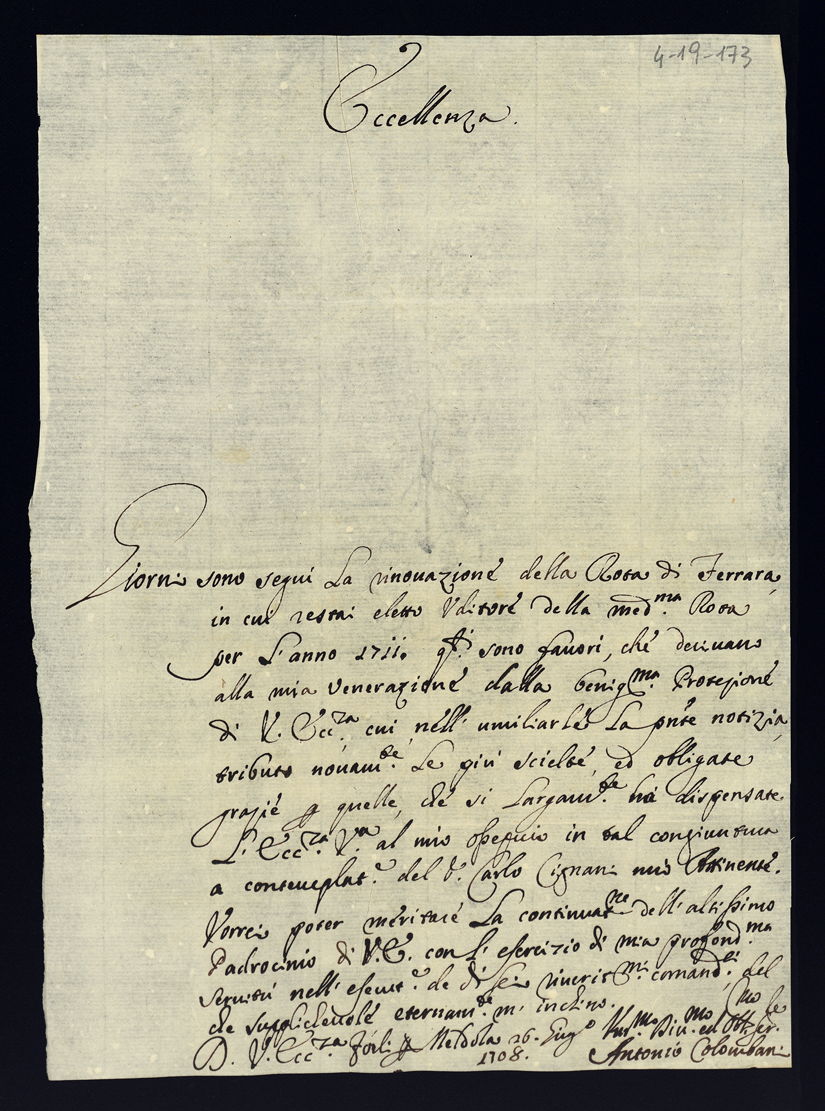 4-19-173
Eccellenza.
Giorni sono seguì La rinouazione della Rota di Ferrara,
in cui restai eletto Vditore della med.ma Rota
per L'anno 1711. q.ti sono fauori, che deriuano
alla mia venerazione dalla benig.ma Protezione
di V. Ecc.za, cui, nell' umiliarle La pnte notizia,
tributo nouam.te Le più scielte, ed obligate
grazie p quelle, che si Largam.te há dispensate
L' Ecc.za V.a al mio ossequio in tal congiuntura
a contemplat.e del S.r Carlo Cignani mio Attinente.
Vorrei poter meritare La continuat.ne dell' altissimo
Padrocinio di V. E. con L' esercizio di mia profond.ma
seruitù nell' esecut.e de di Lei riuerit.mi comand.i, del
che supplicheuole eternam.te m' inchino.
D. V. Ecc.za Forlì p Meldola 26. Lug.o 1708.
Vm.mo Diu.mo ed Obl.mo Se.r
Antonio Colombani